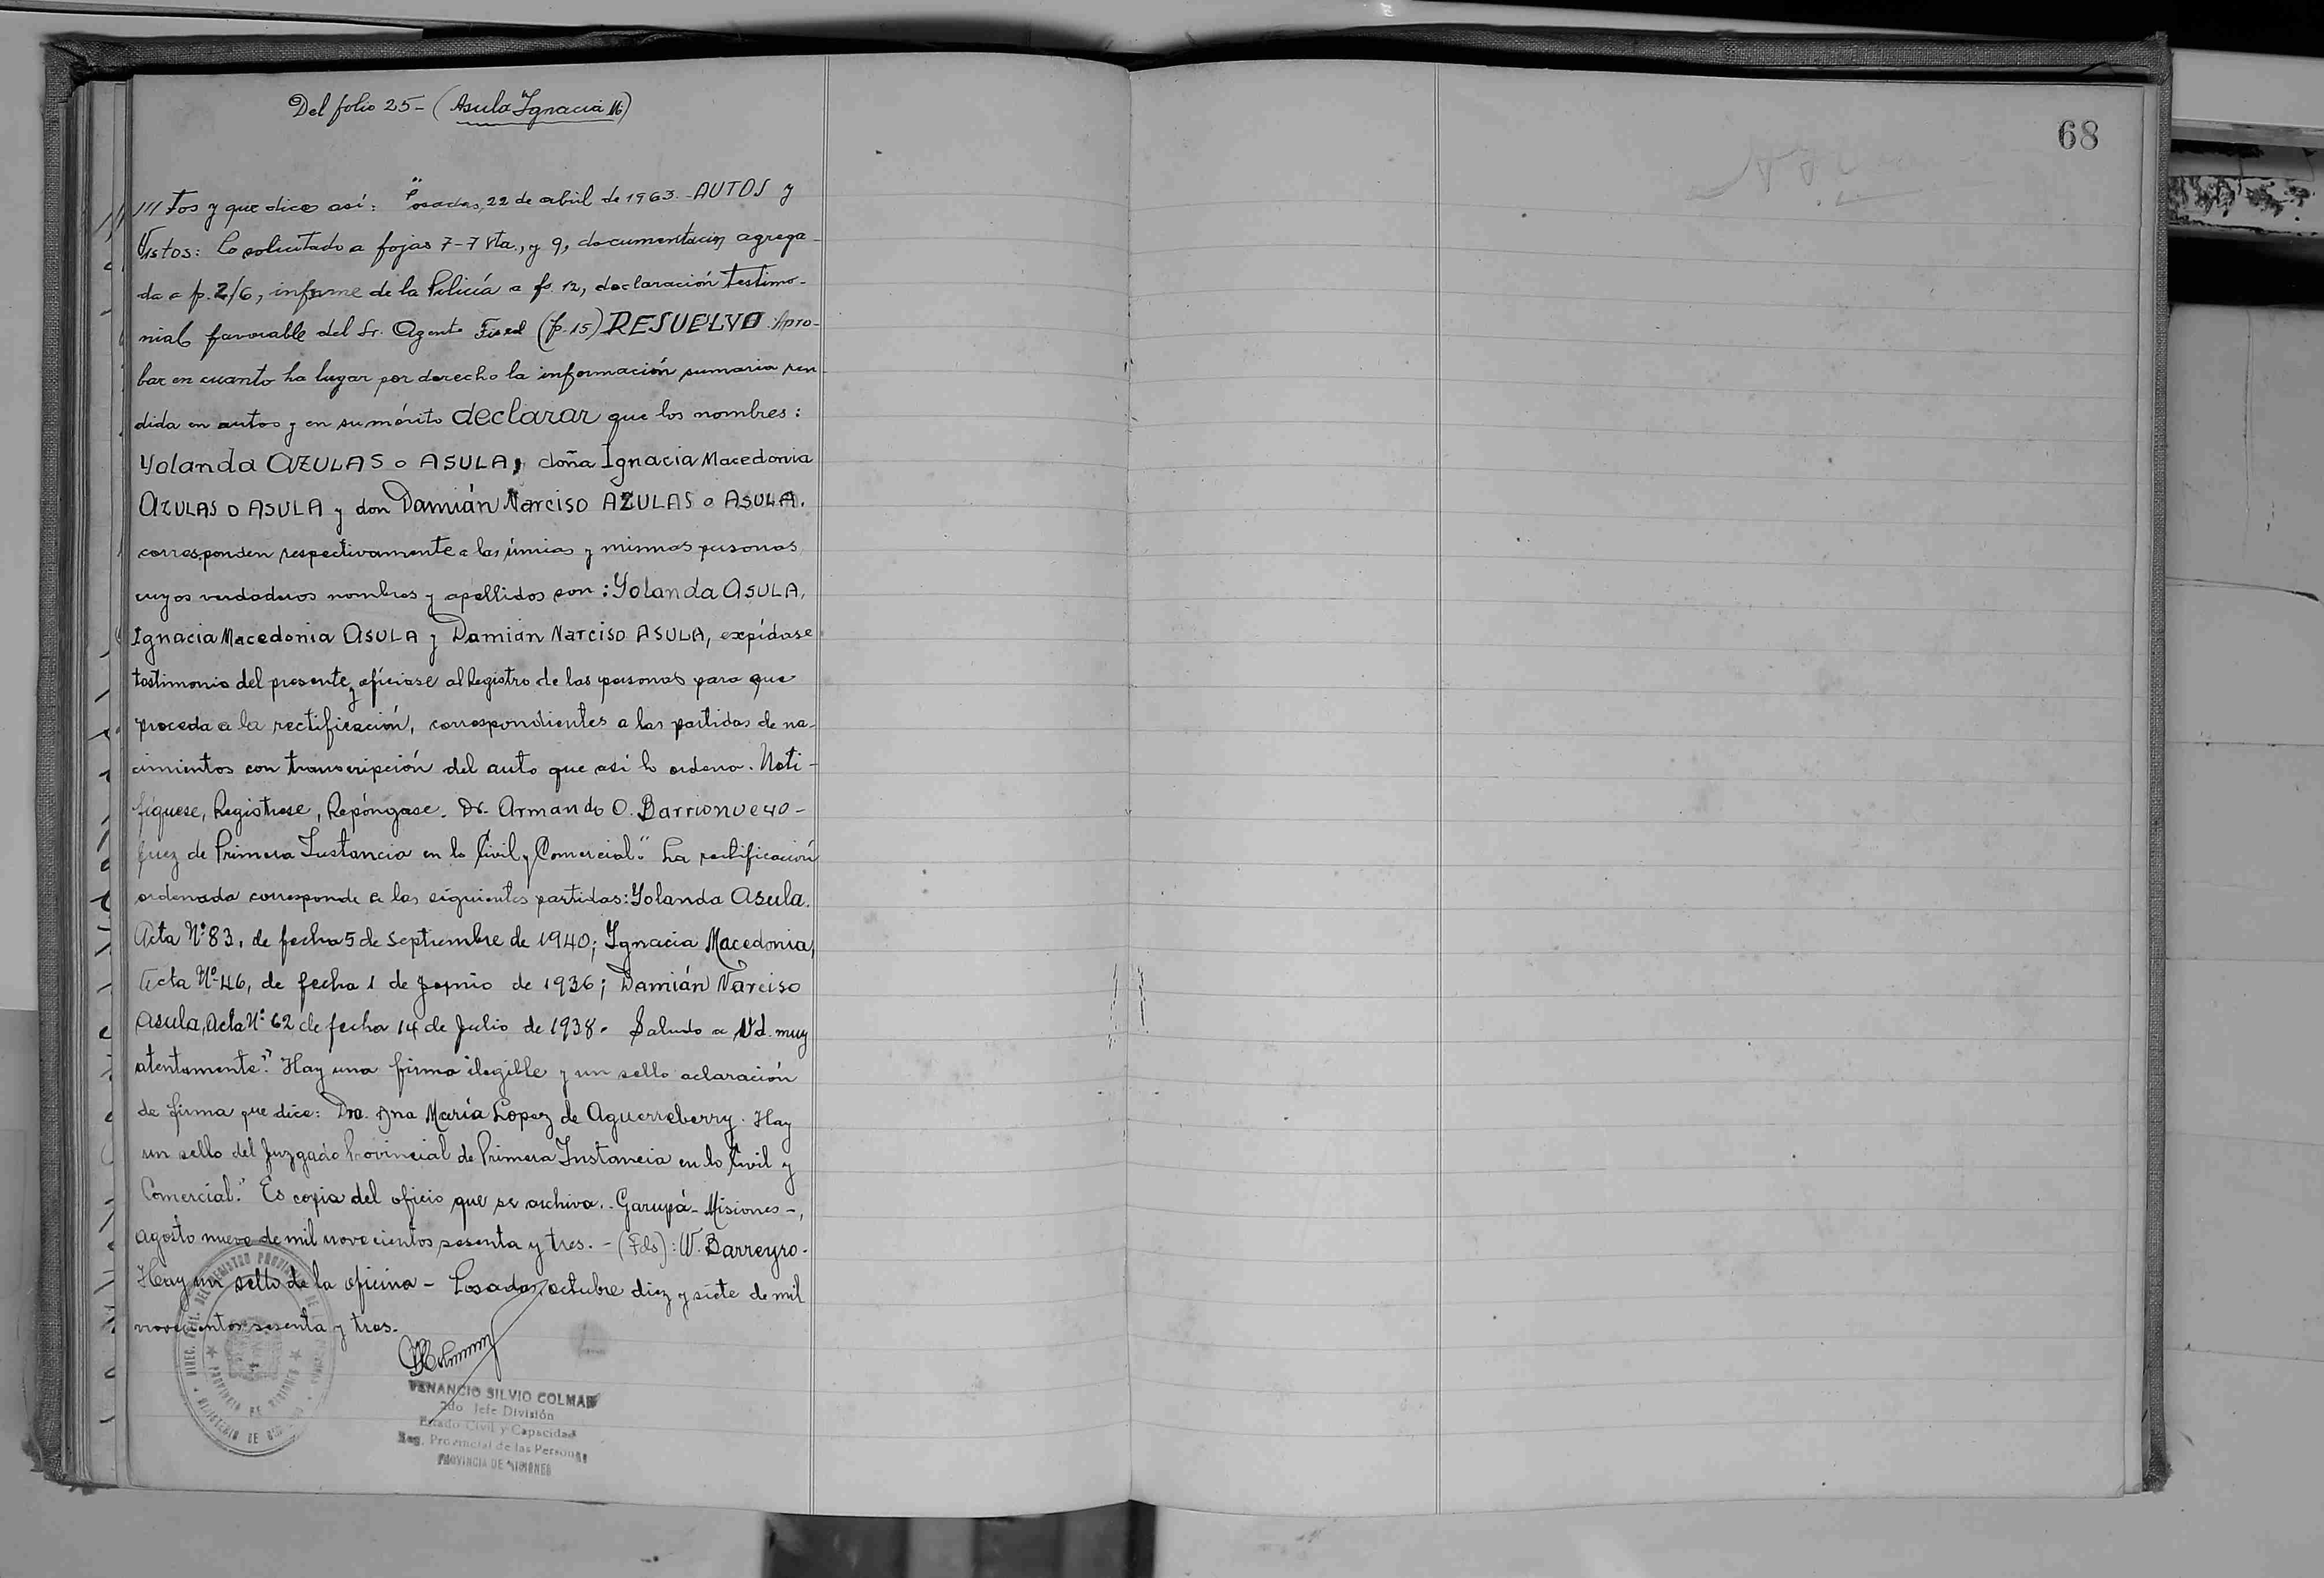 Del folio 25 - (Asula Ignacia
68
/// tos y que dice así: "Posadas, 22 de abril de 1963.- AUTOS y
Vistos: Lo solicitado a fojas 7-7 vta., y 9, documentación agrega-
da a fs. 2/6, informe de la Policía a fs. 12, declaración testimo-
nial favorable del Sr. Agente Fiscal (fs. 15) RESUELVO: Apro-
bar en cuanto ha lugar por derecho la información sumaria ren
dida en autos y en su mérito declarar que los nombres:
Yolanda AZULAS o ASULA, doña Ignacia Macedonia
AZULAS O ASULA y don Damián Narciso AZULAS o ASULA.
corresponden respectivamente a las únicas y mismas personas
cuyos verdaderos nombres y apellidos son: Yolanda ASULA,
Ignacia Macedonia ASULA y Damián Narciso ASULA, expídase
testimonio del presente y ofíciase al Registro de las personas para que
proceda a la rectificación, correspondientes a las partidas de na-
cimientos con transcripción del auto que así lo ordena. Noti-
fíquese, Regístrese, Repóngase. Dr. Armando O. Barrionuevo -
Juez de Primera Instancia en lo Civil y Comercial." La rectificación
ordenada corresponde a las siguientes partidas: Yolanda Asula.
Acta Nº 83, de fecha 5 de septiembre de 1940; Ignacia Macedonia,
Acta Nº 46, de fecha 1 de de 1936; Damián Narciso
Asula, Acta Nº 62 de fecha 14 de Julio de 1938. Saludo a Ud. muy
atentamente." Hay una firma ilegible y un sello aclaración
de firma que dice: Dra. Ana María Lopez de Aguerreberry. Hay
un sello del Juzgado Provincial de Primera Instancia en lo Civil y
Comercial." Es copia del oficio que se archiva.- Garupá - Misiones -,
agosto nueve de mil novecientos sesenta y tres. - (Fdo): W. Barreyro.
Hay un sello de la oficina - Posadas, octubre diez y siete de mil
novecientos sesenta y tres.
VENANCIO SILVIO COLMAN
2do Jefe División
Estado Civil y Capacidad
Reg. Provincial de las Personas
PROVINCIA DE MISIONES
PROVINCIA DE MISIONES